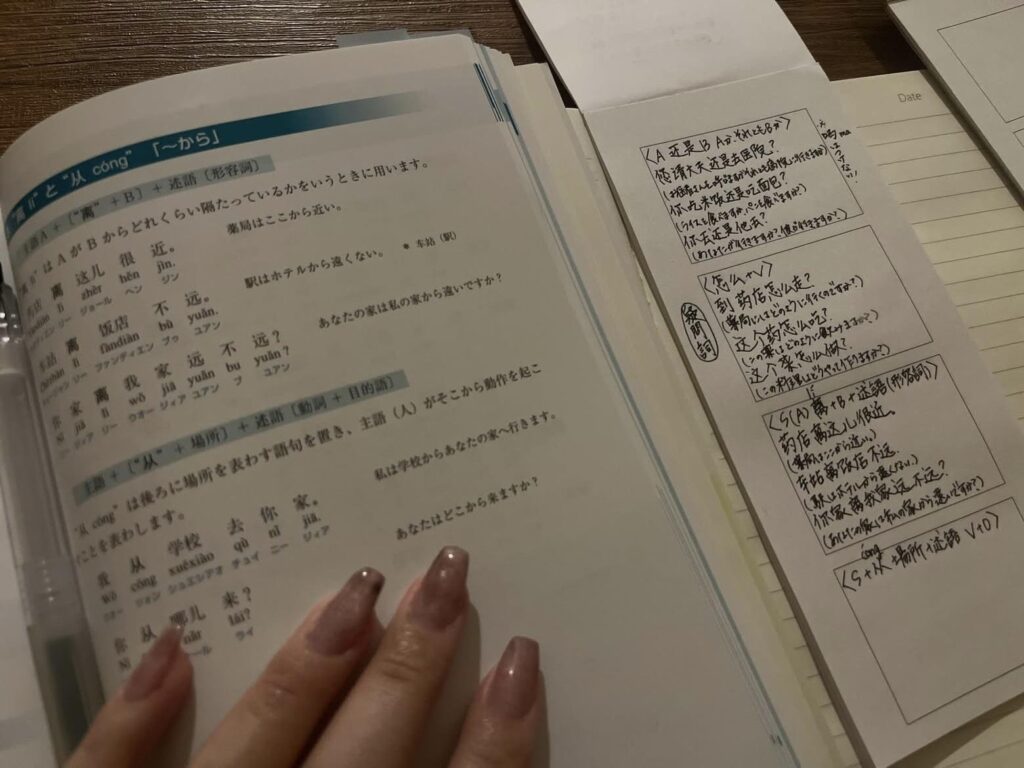 “离 lí” と “从 cóng” 「〜から」
主語A + 〔“离” + B〕 + 述語〔形容詞〕
“离” は A が B からどれくらい隔たっているかをいうときに用います。
药店 离 这儿 很 近。 薬局はここから近い。
lí zhèr hěn jìn.
リー ジョール ヘン ジン
车站 离 饭店 不 远。 駅はホテルから遠くない。 * 车站(駅)
lí fàndiàn bù yuǎn.
リー ファンディエン ブゥ ユアン
你 家 离 我 家 远 不 远? あなたの家は私の家から遠いですか?
Nǐ jiā lí wǒ jiā yuǎn bu yuǎn?
ニー ジィア リー ウオー ジィア ユアン ブ ユアン
主語 + 〔“从” + 場所〕 + 述語〔動詞 + 目的語〕
“从 cóng” は後ろに場所を表わす語句を置き、主語(人)がそこから動作を起こ
すことを表わします。
我 从 学校 去 你 家。 私は学校からあなたの家へ行きます。
Wǒ cóng xuéxiào qù nǐ jiā.
ウオー ツォン シュエシアオ チュイ ニー ジィア
你 从 哪儿 来? あなたはどこから来ますか?
Nǐ nǎr lái?
ライ
Date
〈A 还是 B AかそれともBか〉
您请大夫还是去医院?
你吃米饭还是吃面包?
(ライスを食べますか、パンを食べますか?)
你去还是他去?
(あなたが行きますか?彼が行きますか?)
吗 ma
はつかない
疑問詞
〈怎么+V〉
到药店怎么走?
(薬局にはどのように行くのですか?)
这个药怎么吃?
(この薬はどのように飲みますか?)
这个菜怎么做?
(この料理はどうやって作りますか?)
〈S(A) 离+B+述語(形容詞)〉
药店离这儿很近。
(薬局はここから近い。)
车站离饭店不远.
(駅はホテルから遠くない。)
你家离我家远不远?
(あなたの家は私の家から遠いですか?)
cóng
〈S+从 場所+述語 V+O〉